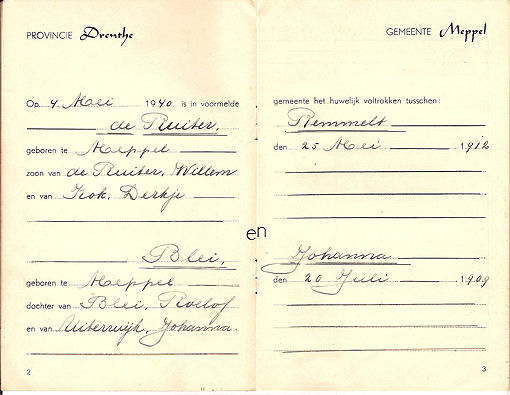 PROVINCIE Drenthe
Op 4 Mei 1940 is in voormelde
de Ruiter,
geboren te Meppel
zoon van de Ruiter, Willem
en van Kok, Derkje
Blei,
geboren te Meppel
dochter van Blei, Roelof
en van Uiterwijk, Johanna
2
GEMEENTE Meppel
gemeente het huwelijk voltrokken tusschen:
Remmelt
den 25 Mei 1912
en
Johanna
den 20 Juli 1909
3